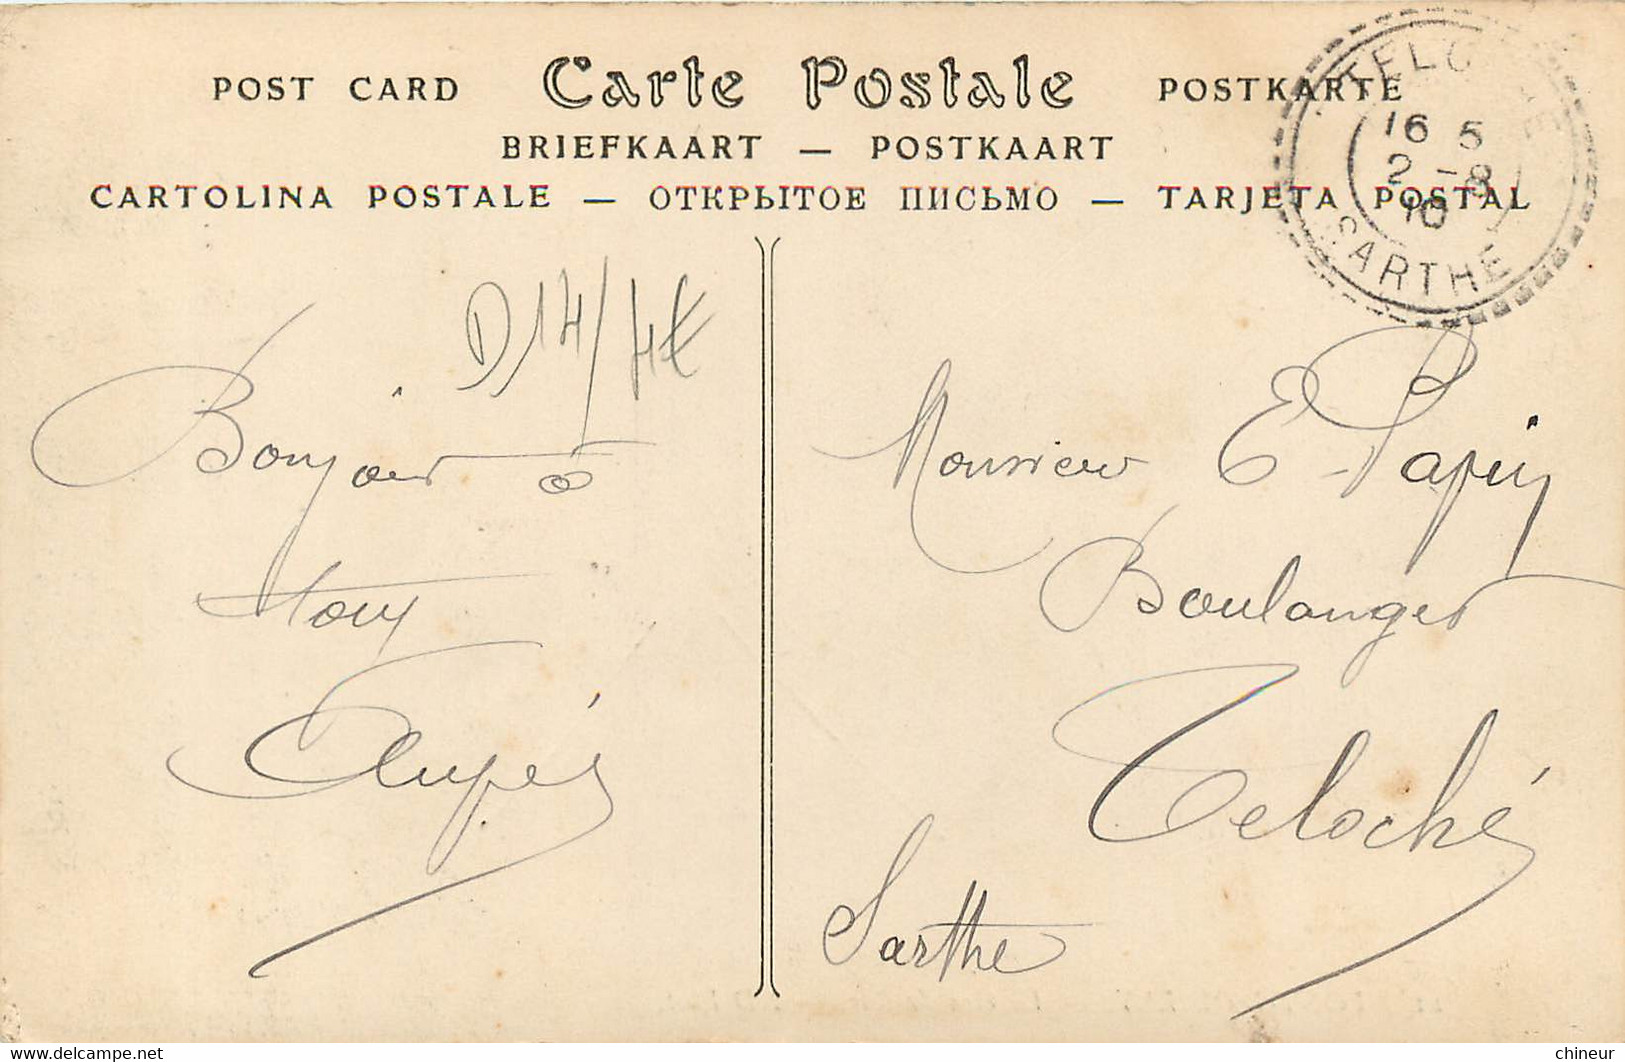 POST CARD Carte Postale POSTKARTE
BRIEFKAART — POSTKAART
CARTOLINA POSTALE — ОТКРЫТОЕ ПИСЬМО — TARJETA POSTAL
16 5
2 - 8
10
SARTHE
D14/4€
Bonjour à
tous
Monsieur E Papin
Boulanger
Teloché
Sarthe
chineur